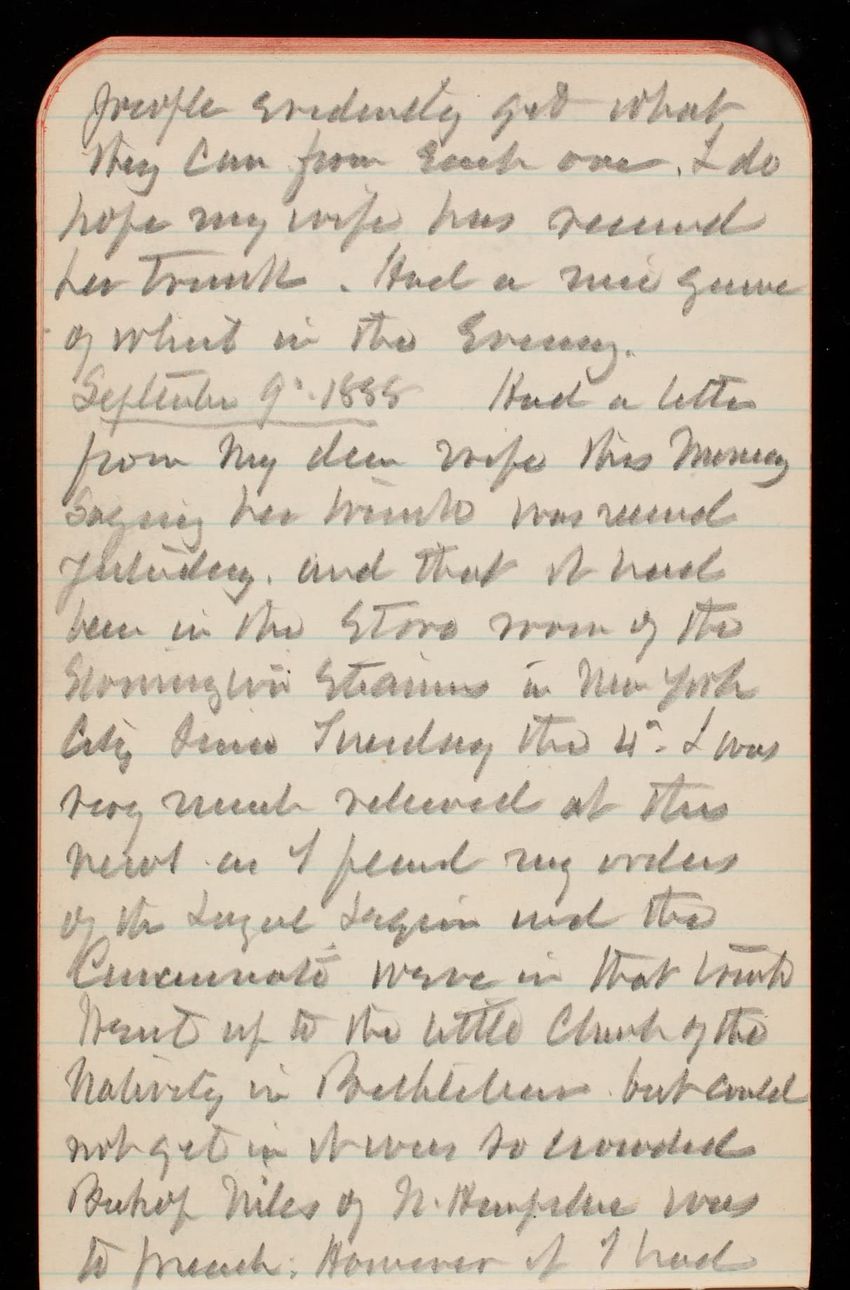 people evidently get what
they can from Each one. I do
hope my wife has received
her Trunk. Had a nice game
of whist in the Evening.
September 9" 1888 Had a letter
from my dear wife this Morning
Saying her trunk was received
yesterday. and that it had
been in the Store room of the
Stonington Steamers in New York
City Since Tuesday the 4". I was
very much relieved at this
news as I feared my orders
of the Loyal Legion and the
Cincinnati were in that trunk
Went up to the little Church of the
Nativity in Bethlehem but could
not get in it was so crowded
Bishop Niles of N. Hampshire was
to preach. However if I had